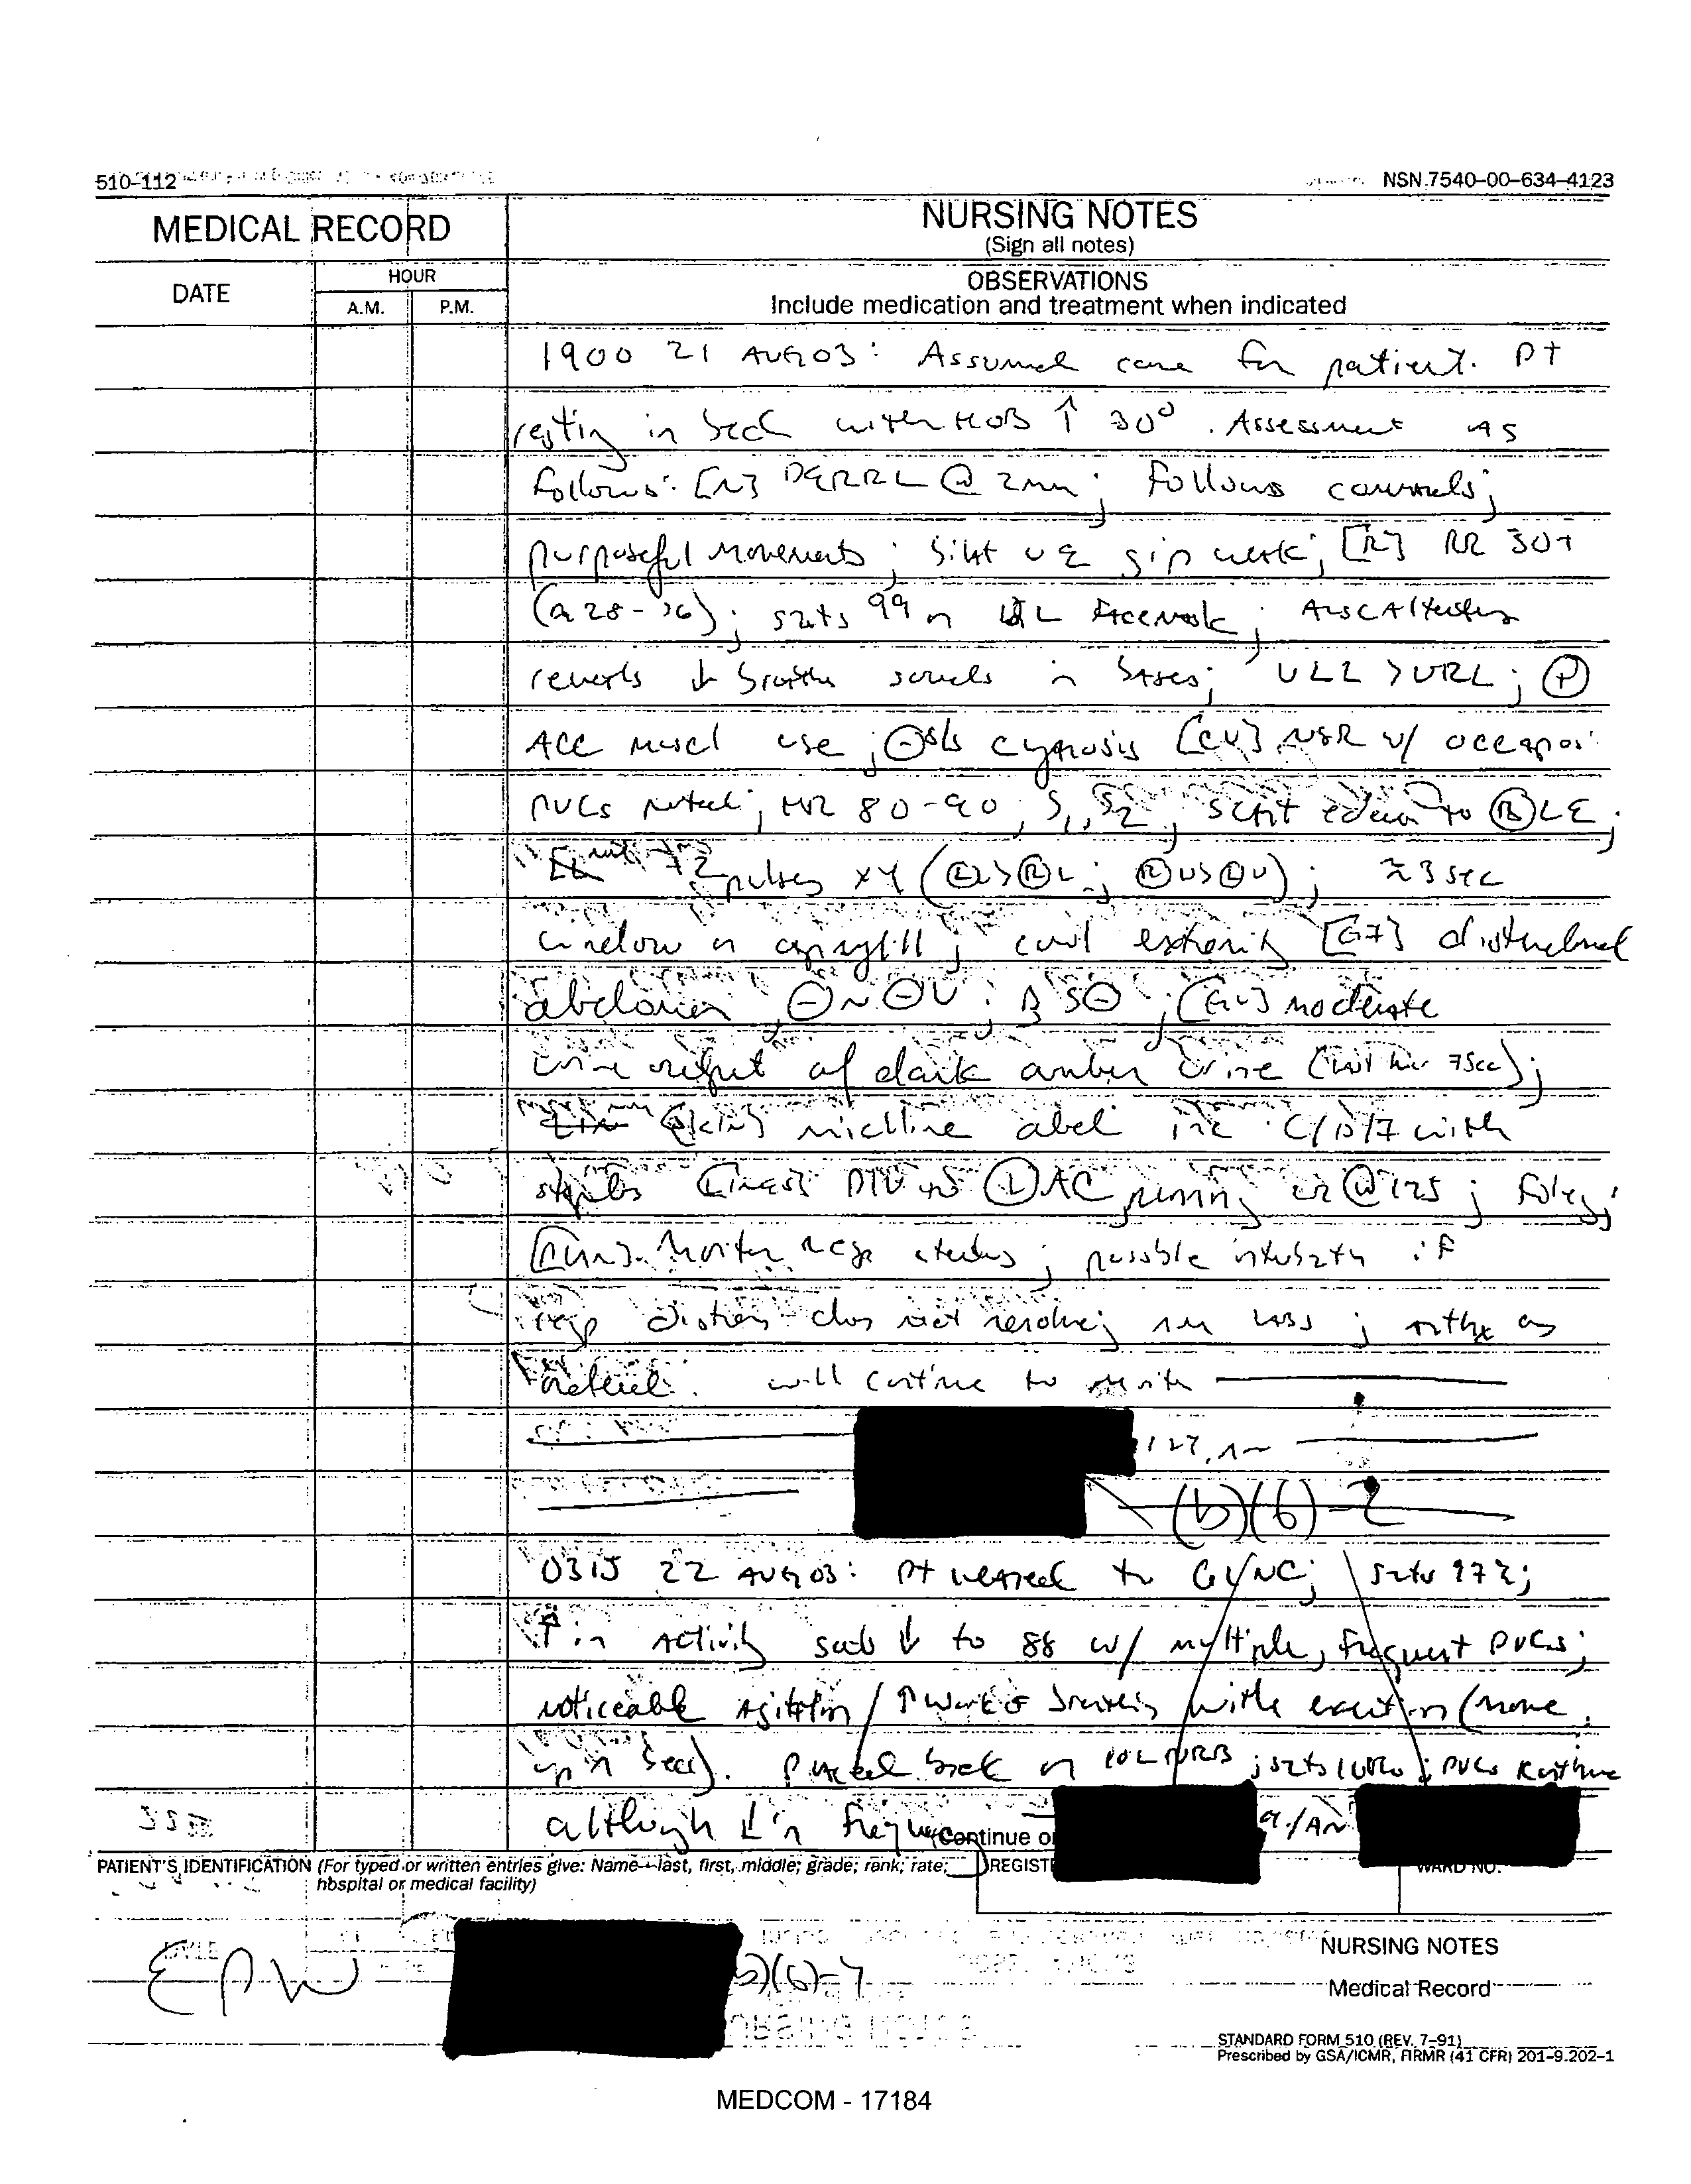 510-112
NSN 7540-00-634-4123
MEDICAL RECORD
NURSING NOTES
(Sign all notes)
DATE
HOUR
A.M.
P.M.
OBSERVATIONS
Include medication and treatment when indicated
1900 21 AUG 03: Assumed care for patient. PT
resting in bed with HOB ↑ 30°. Assessment as
follows: [N] PERRL @ 2mm; follows commands;
purposeful movements; grip weak; [R] RR 30+
(28-36); sats 99 on Facemask; Auscultation
reveals ↓ breath sounds in bases; ULL > URL; (+)
ACC muscl use; (-) cyanosis [CV] NSR w/
PVCs noted; HR 80-90; S1, S2; edema to (R) LE;
+2 pulses x4 ((L) > (R) L; (R) U > (L) U); ≈3 sec
on cap refill; cool [GI]
abdomen (-) N (-) V; BS (-); [GU] moderate
urine output of dark amber urine;
[SKIN] midline abd inc C/D/I with
staples [Lines] PIV to (L) AC running @ 125; foley;
[Plan] Monitor resp status; possible intubation if
resp distress does not resolve; AM labs; as
ordered. will continue to monitor
(b)(6)-2
0315 22 AUG 03: Pt weaned to NC; sats 97%;
↑ in activity sats ↓ to 88 w/ multiple, frequent PVCs;
noticeable agitation/↑ work of breathing with exertion (move
up in bed). Placed back on 10L NRB; sats 100%; PVCs continue
although ↓ in frequency
(Continue o
/AN
PATIENT'S IDENTIFICATION (For typed or written entries give: Name—last, first, middle; grade; rank; rate;
hospital or medical facility)
REGIST
WARD NO.
EPW
(b)(6)-4
NURSING NOTES
Medical Record
STANDARD FORM 510 (REV. 7-91)
Prescribed by GSA/ICMR, FIRMR (41 CFR) 201-9.202-1
MEDCOM - 17184